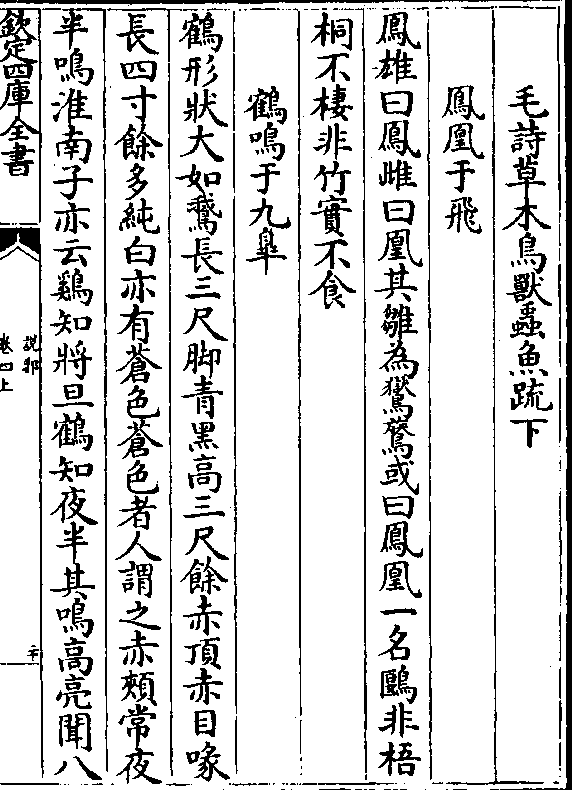 毛詩草木鳥獸蟲魚疏下
鳳凰于飛
鳳雄曰鳳雌曰凰其雛為鸑鷟或曰鳳凰一名鶠非梧
桐不棲非竹實不食
鶴鳴于九臯
鶴形狀大如鵞長三尺脚青黑高三尺餘赤頂赤目喙
長四寸餘多純白亦有蒼色蒼色者人謂之赤頰常夜
半鳴淮南子亦云鷄知將旦鶴知夜半其鳴高亮聞八
欽定四庫全書
說郛
卷四上